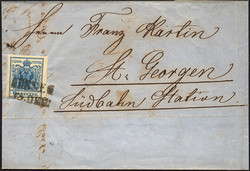 Herrn Franz Martin
St. Georgen
Südbahn Station.